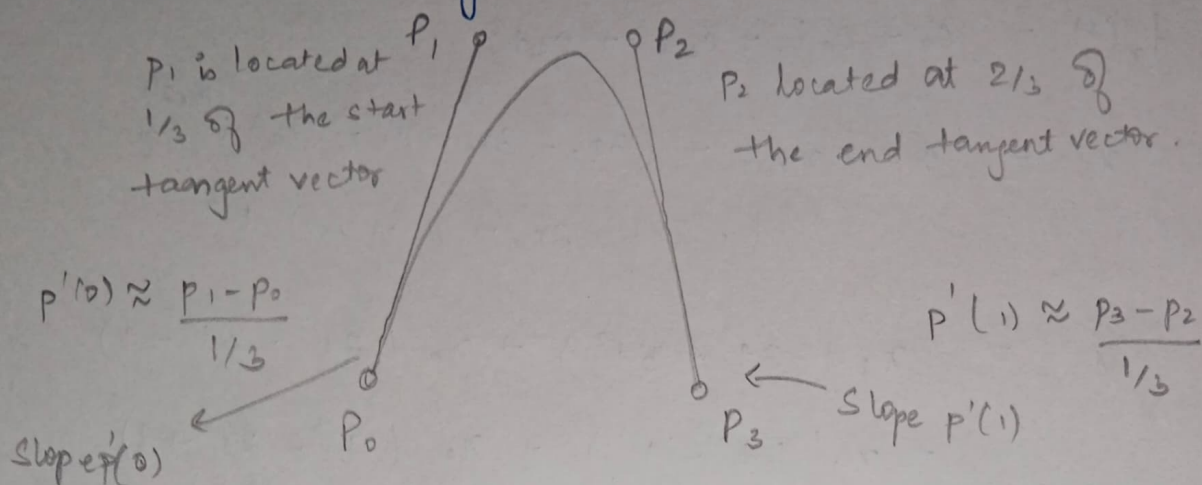 P₁
P₁ is located at
1/3 of the start
taangent vector
P₂
P₂ located at 2/3 of
the end tangent vector.
p'(0) ≈ P₁-P₀ / 1/3
p'(1) ≈ P₃-P₂ / 1/3
P₀
P₃
Slope p'(0)
Slope p'(1)